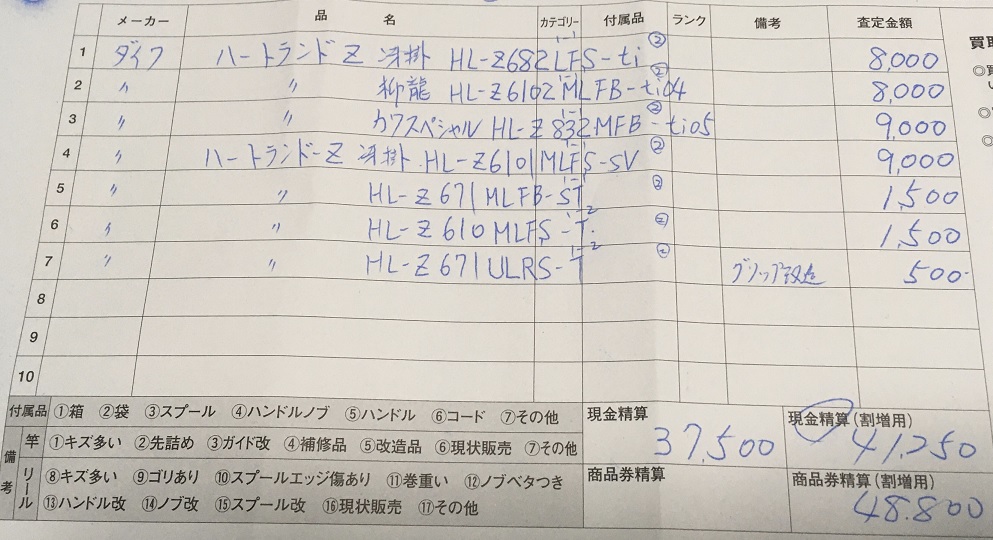 メーカー 品 名 カテゴリー 付属品 ランク 備考 査定金額
1 ダイワ ハートランドZ 冴掛 HL-Z682LFS-ti 1-1 ② 8,000
2 〃 〃 柳龍 HL-Z6102MLFB-ti04 1-1 ② 8,000
3 〃 〃 カワスペシャル HL-Z832MFB-ti05 1-1 ② 9,000
4 〃 ハートランド-Z 冴掛 HL-Z6101MLFS-SV 1-1 ② 9,000
5 〃 〃 HL-Z671MLFB-ST 1-1 ② 1,500
6 〃 〃 HL-Z610MLFS-T. 1-2 ② 1,500
7 〃 〃 HL-Z671ULRS-T 1-2 ② グリップ改造 500-
8
9
10
付属品 ①箱 ②袋 ③スプール ④ハンドルノブ ⑤ハンドル ⑥コード ⑦その他
備考 竿 ①キズ多い ②先詰め ③ガイド改 ④補修品 ⑤改造品 ⑥現状販売 ⑦その他
リール ⑧キズ多い ⑨ゴリあり ⑩スプールエッジ傷あり ⑪巻重い ⑫ノブベタつき
⑬ハンドル改 ⑭ノブ改 ⑮スプール改 ⑯現状販売 ⑰その他
現金精算 37,500
現金精算(割増用) 41,250
商品券精算
商品券精算(割増用) 48.800
買取
◎買
い
◎